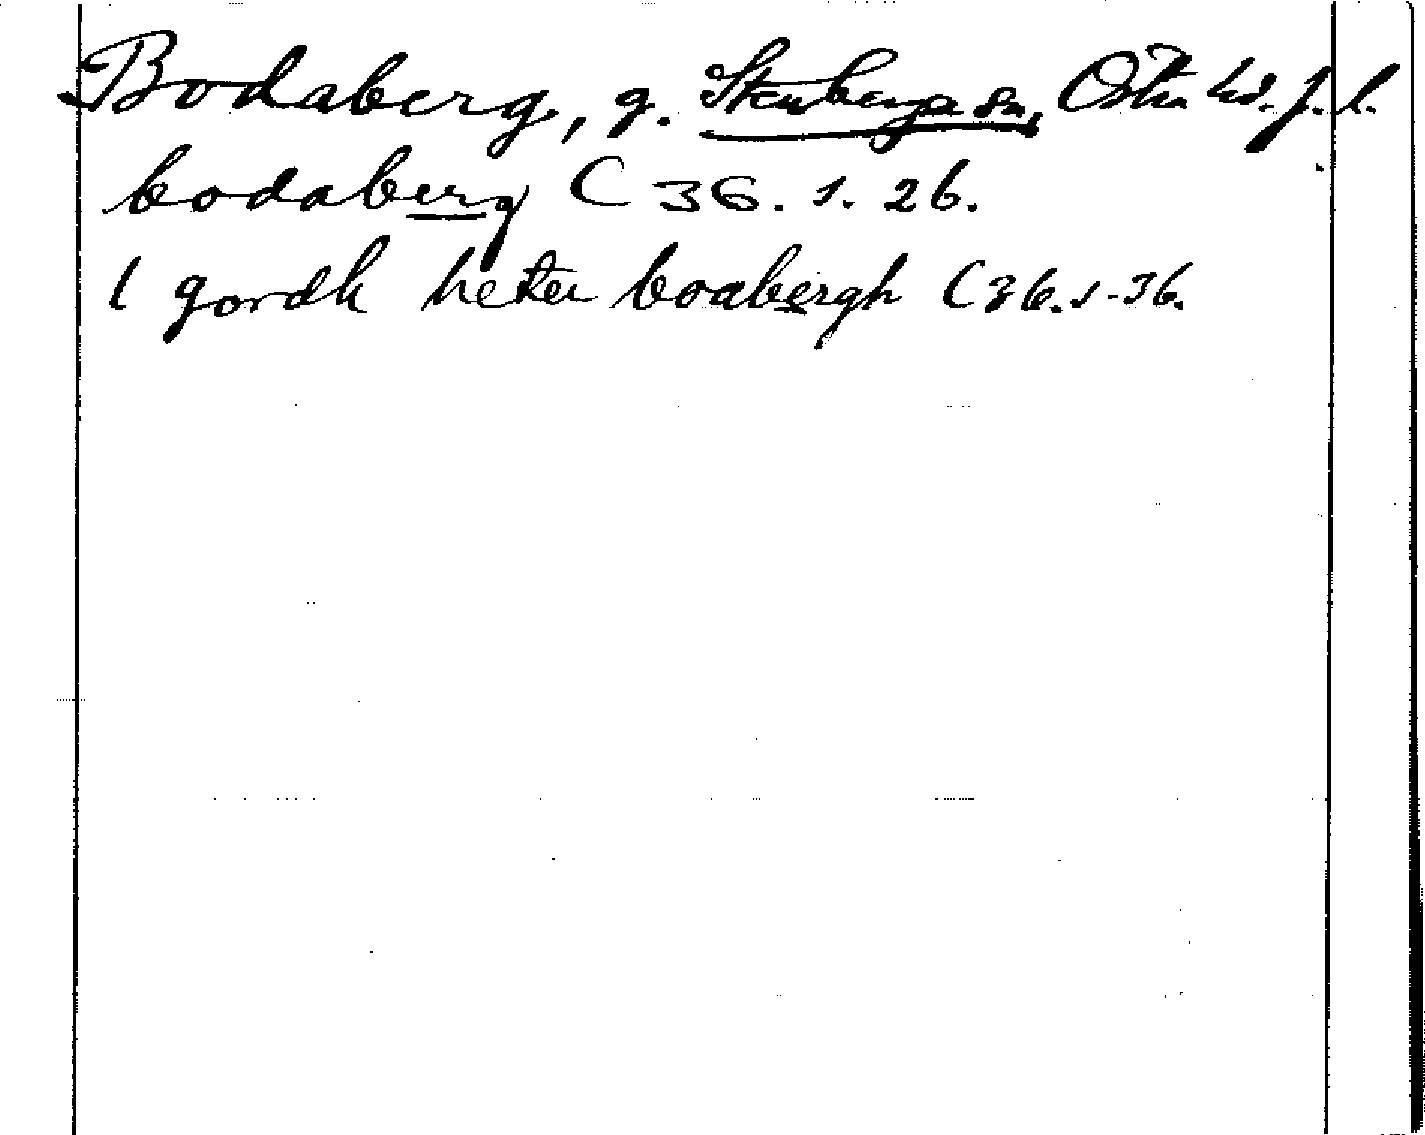 Bodaberg, g. Stenberga sn, Östra hd. J. l.
bodaberg C 36. 1. 26.
1 gordh heter boabergh C 36. 1. 36.